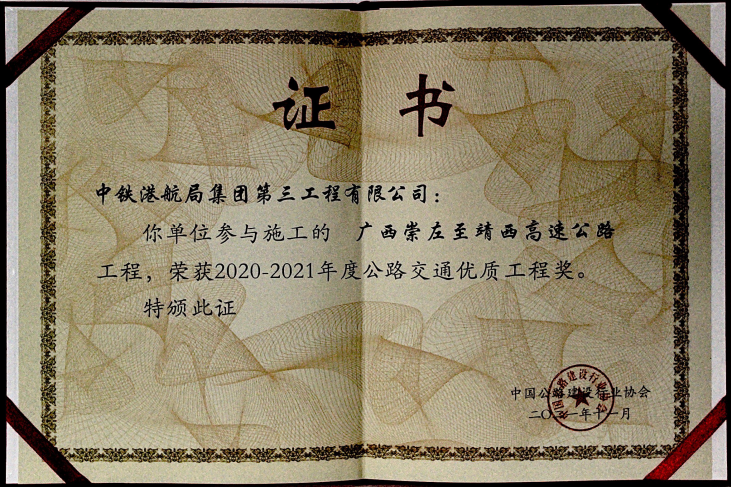 证 书
中铁港航局集团第三工程有限公司：
你单位参与施工的 广西崇左至靖西高速公路
工程，荣获2020-2021年度公路交通优质工程奖。
特颁此证
中国公路建设行业协会
二〇二一年十一月